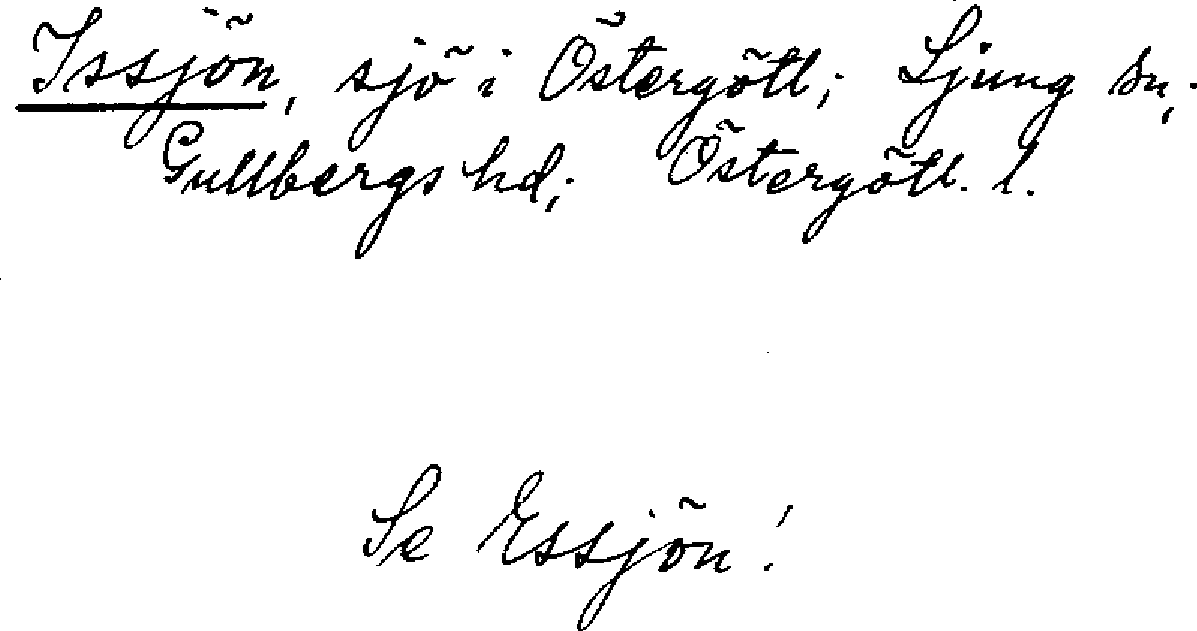 Issjön, sjö i Östergötl; Ljung sn;
Gullbergs hd; Östergötl. l.
Se Essjön!